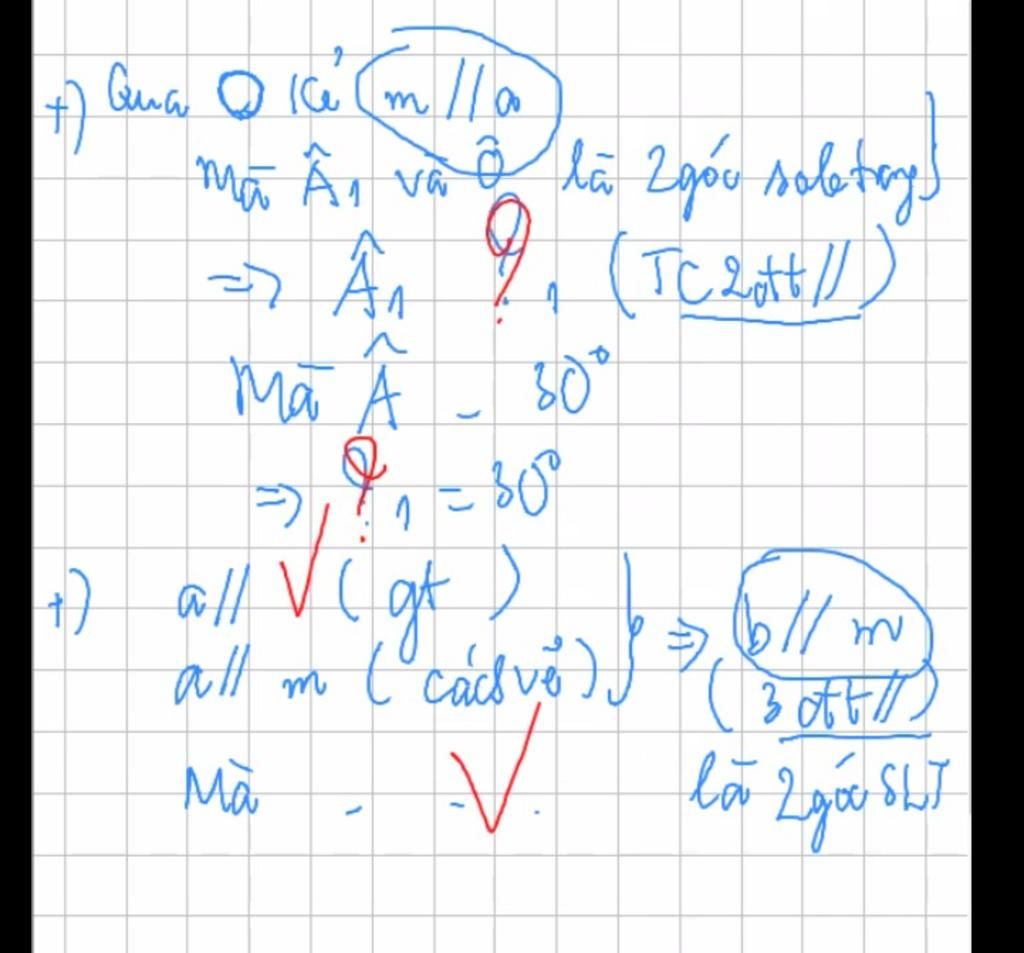 +) Qua O Kẻ m // a
Mà Â₁ và Ô là 2 góc sole trong }
=> Â₁ ? ₁ (TC 2đtt //)
Mà Â = 30°
=> ? ₁ = 30°
+) a // (gt)
a // m (cách vẽ) } => b // m
(3 đtt //)
Mà - - . là 2 góc SLT